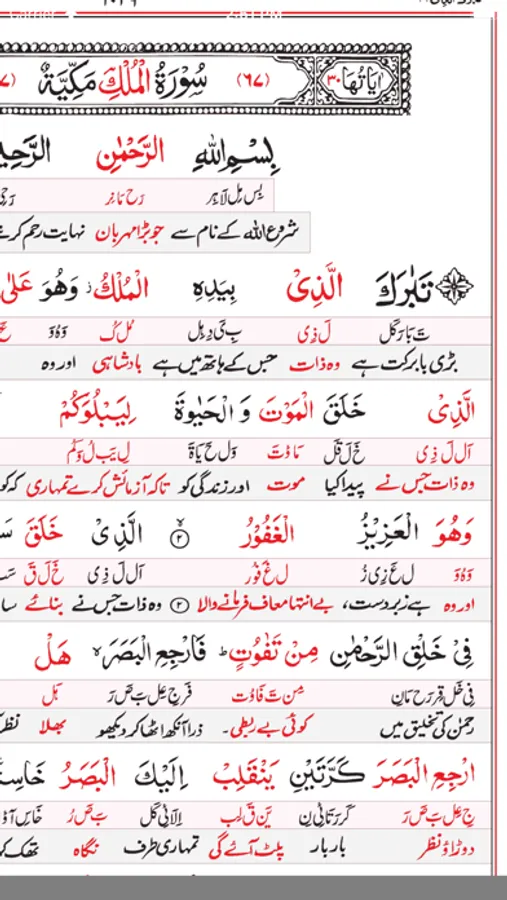 Carrier 2:51 PM
اٰیَاتُهَا ۳۰ (٦٧) سُوْرَةُ الْمُلْكِ مَكِّیَّةٌ
بِسْمِ اللهِ الرَّحْمٰنِ
بِس مِل لَاہِر رَح مَانِر
شروع اللہ کے نام سے جو بڑا مہربان نہایت رحم کرنے
تَبٰرَكَ الَّذِیْ بِیَدِهِ الْمُلْكُ ز وَهُوَ عَلٰی
تَ بَا رَ کَل لَ ذِی بِ یَ دِ ہِل مُل کُ وَ ہُ وَ
بڑی بابرکت ہے وہ ذات جس کے ہاتھ میں ہے بادشاہی اور وہ
الَّذِیْ خَلَقَ الْمَوْتَ وَ الْحَیٰوةَ لِیَبْلُوَكُمْ
اَل لَ ذِی خَ لَ قَل مَاؤ تَ وَل حَ یَا ةَ لِ یَب لُ وَ کُم
وہ ذات جس نے پیدا کیا موت اور زندگی کو تاکہ آزمائش کرے تمہاری کہ کو
وَهُوَ الْعَزِیْزُ الْغَفُوْرُ ۲ الَّذِیْ خَلَقَ
وَ ہُ وَ ل عَ زِی زُ ل غَ فُو رُ اَل لَ ذِی خَ لَ قَ
اور وہ ہے زبردست، بے انتہا معاف فرمانے والا ۲ وہ ذات جس نے بنائے سا
فِیْ خَلْقِ الرَّحْمٰنِ مِنْ تَفٰوُتٍ ط فَارْجِعِ الْبَصَرَ لا هَلْ
فِی خَل قِر رَح مَانِ مِن تَ فَا وُت فَر جِ عِل بَ صَ رَ ہَل
رحمٰن کی تخلیق میں کوئی بے ربطی۔ ذرا آنکھ اٹھا کر دیکھو بھلا نظر
ارْجِعِ الْبَصَرَ كَرَّتَیْنِ یَنْقَلِبْ اِلَیْكَ الْبَصَرُ
جِ عِل بَ صَ رَ کَر رَ تَائی نِ یَن قَ لِب اِلَائی کَل بَ صَ رُ
دوڑاؤ نظر بار بار پلٹ آئے گی تمہاری طرف نگاہ تھک کر